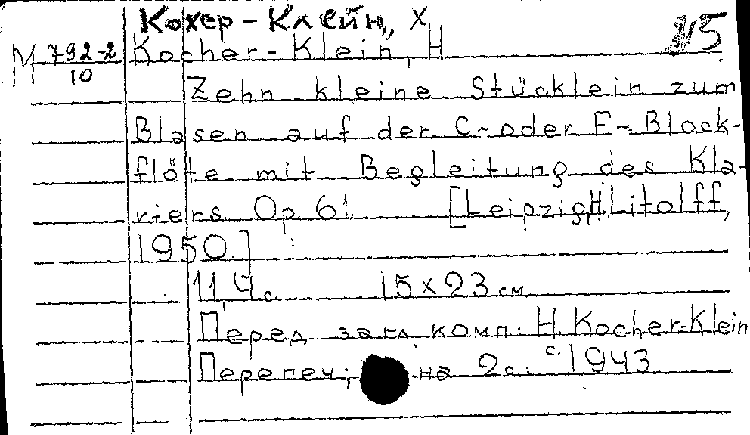 Кохер-Клейн, Х
М 792-2/10 Kocher-Klein, H
Zehn kleine Stücklein zum
Blasen auf der C-oder F-Block-
flöte mit Begleitung des Kla-
viers Op 61 [Leipzig, H. Litolff,
1950.]
11, 4 с. 15x23 см
Перед загл. комп: H Kocher-Klein
Перепеч; на 2с. c 1943